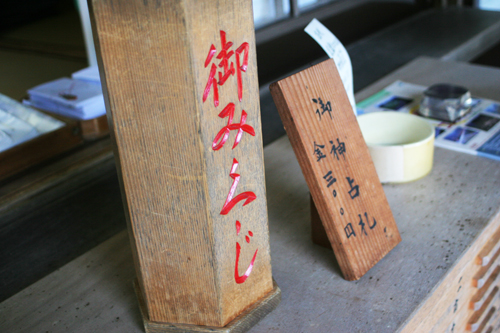 御みくじ
御神占札
金三〇〇円